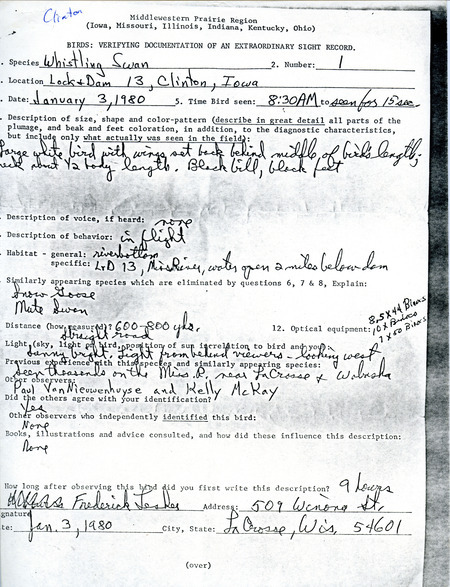 Clinton
Middlewestern Prairie Region
(Iowa, Missouri, Illinois, Indiana, Kentucky, Ohio)
BIRDS: VERIFYING DOCUMENTATION OF AN EXTRAORDINARY SIGHT RECORD.
. Species Whistling Swan 2. Number: 1
. Location Lock & Dam 13, Clinton, Iowa
. Date: January 3, 1980 5. Time Bird seen: 8:30 AM to seen for 15 sec.
. Description of size, shape and color-pattern (describe in great detail all parts of the
plumage, and beak and feet coloration, in addition, to the diagnostic characteristics,
but include only what actually was seen in the field):
Large white bird with wings set back behind middle of birds length;
neck about 1/2 body length. Black bill, black feet
. Description of voice, if heard: none
. Description of behavior: in flight
. Habitat - general: riverbottom
specific: L+D 13, Miss River, water open 2 miles below dam
. Similarly appearing species which are eliminated by questions 6, 7 & 8, Explain:
Snow Goose
Mute Swan
Distance (how measured)? 600-800 yds. 12. Optical equipment: 8.5X44 Binos
straight road 10X Binocs
7X50 Binos
Light (sky, light of bird, position of sun in relation to bird and you):
sunny bright, light from behind viewers - looking west
Previous experience with this species and similarly appearing species:
seen thousands on the Miss. R. near LaCrosse & Wabasha
Other observers:
Paul Van Nieuwenhuyse and Kelly McKay
Did the others agree with your identification?
Yes
Other observers who independently identified this bird:
None
Books, illustrations and advice consulted, and how did these influence this description:
None
How long after observing this bird did you first write this description? 9 hours
Frederick Lesher Address: 509 Winona St.
gnature
te: Jan. 3, 1980 City, State: LaCrosse, Wis. 54601
(over)